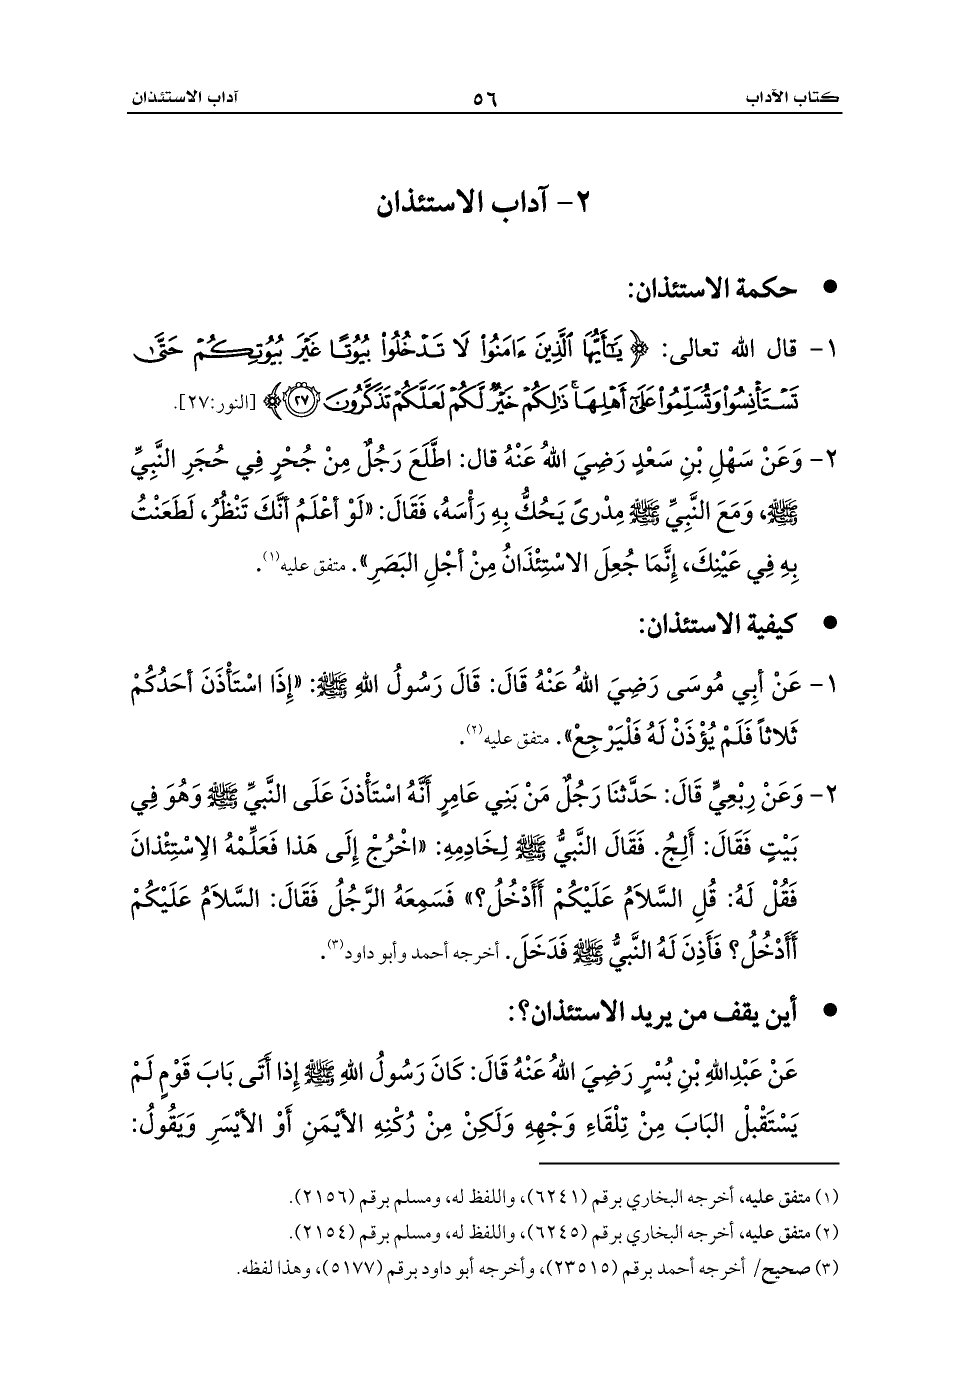 كتاب الآداب ٥٦ آداب الاستئذان
٢- آداب الاستئذان
● حكمة الاستئذان:
١- قال الله تعالى: ﴿ يَٰٓأَيُّهَا ٱلَّذِينَ ءَامَنُواْ لَا تَدۡخُلُواْ بُيُوتًا غَيۡرَ بُيُوتِكُمۡ حَتَّىٰ
تَسۡتَأۡنِسُواْ وَتُسَلِّمُواْ عَلَىٰٓ أَهۡلِهَاۚ ذَٰلِكُمۡ خَيۡرٞ لَّكُمۡ لَعَلَّكُمۡ تَذَكَّرُونَ ٢٧﴾ [النور:٢٧].
٢- وَعَنْ سَهْلِ بْنِ سَعْدٍ رَضِيَ اللهُ عَنْهُ قال: اطَّلَعَ رَجُلٌ مِنْ جُحْرٍ فِي حُجَرِ النَّبِيِّ
ﷺ، وَمَعَ النَّبِيِّ ﷺ مِدْرىً يَحُكُّ بِهِ رَأْسَهُ، فَقَالَ: «لَوْ أعْلَمُ أنَّكَ تَنْظُرُ، لَطَعَنْتُ
بِهِ فِي عَيْنِكَ، إِنَّمَا جُعِلَ الاسْتِئْذَانُ مِنْ أجْلِ البَصَرِ». متفق عليه(١).
● كيفية الاستئذان:
١- عَنْ أبِي مُوسَى رَضِيَ اللهُ عَنْهُ قَالَ: قَالَ رَسُولُ اللهِ ﷺ: «إِذَا اسْتَأْذَنَ أحَدُكُمْ
ثَلاثاً فَلَمْ يُؤْذَنْ لَهُ فَلْيَرْجِعْ». متفق عليه(٢).
٢- وَعَنْ رِبْعِيٍّ قَالَ: حَدَّثنَا رَجُلٌ مَنْ بَنِي عَامِرٍ أَنَّهُ اسْتَأْذنَ عَلَى النَّبِيِّ ﷺ وَهُوَ فِي
بَيْتٍ فَقَالَ: أَلِجُ. فَقَالَ النَّبِيُّ ﷺ لِخَادِمِهِ: «اخْرُجْ إِلَى هَذا فَعَلِّمْهُ الاِسْتِئْذانَ
فَقُلْ لَهُ: قُلِ السَّلاَمُ عَلَيْكُمْ أَأَدْخُلُ؟» فَسَمِعَهُ الرَّجُلُ فَقَالَ: السَّلاَمُ عَلَيْكُمْ
أَأَدْخُلُ؟ فَأَذِنَ لَهُ النَّبِيُّ ﷺ فَدَخَلَ. أخرجه أحمد وأبو داود(٣).
● أين يقف من يريد الاستئذان؟:
عَنْ عَبْدِاللهِ بْنِ بُسْرٍ رَضِيَ اللهُ عَنْهُ قَالَ: كَانَ رَسُولُ اللهِ ﷺ إِذا أَتَى بَابَ قَوْمٍ لَمْ
يَسْتَقْبلْ البَابَ مِنْ تِلْقَاءِ وَجْهِهِ وَلَكِنْ مِنْ رُكْنِهِ الأيْمَنِ أَوْ الأيْسَرِ وَيَقُولُ:
(١) متفق عليه، أخرجه البخاري برقم (٦٢٤١)، واللفظ له، ومسلم برقم (٢١٥٦).
(٢) متفق عليه، أخرجه البخاري برقم (٦٢٤٥)، واللفظ له، ومسلم برقم (٢١٥٤).
(٣) صحيح/ أخرجه أحمد برقم (٢٣٥١٥)، وأخرجه أبو داود برقم (٥١٧٧)، وهذا لفظه.